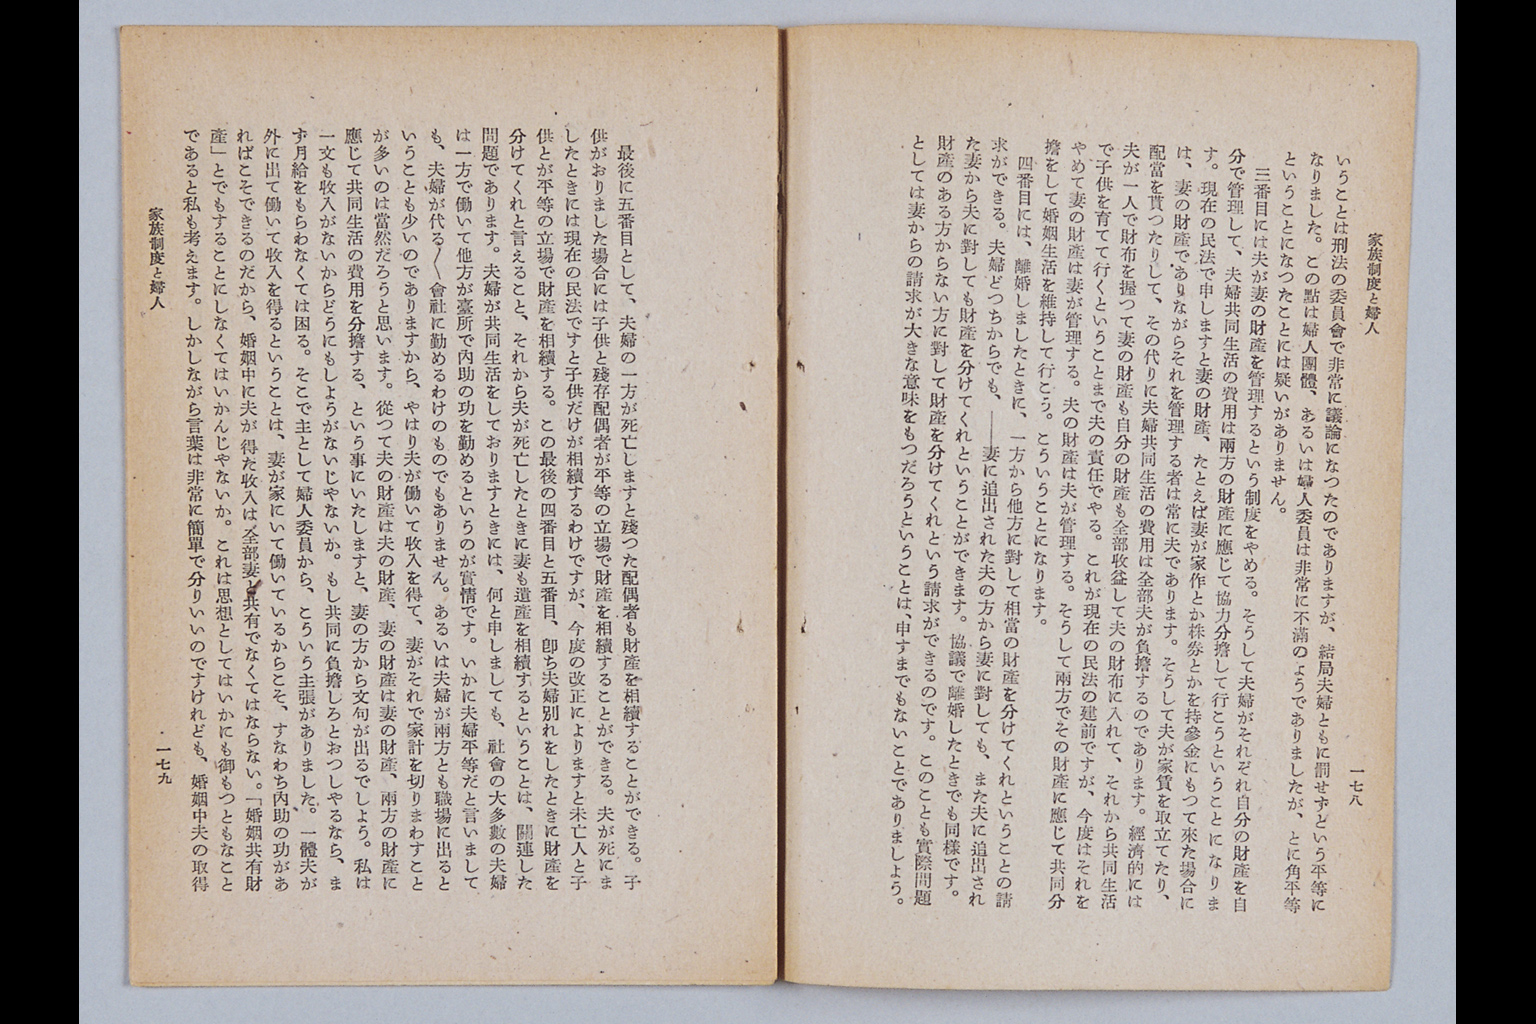 家族制度と婦人
一七八
いうことは刑法の委員會で非常に議論になつたのでありますが、結局夫婦ともに罰せずという平等に
なりました。この點は婦人團體、あるいは婦人委員は非常に不滿のようでありましたが、とに角平等
ということになつたことには疑いがありません。
三番目には夫が妻の財產を管理するという制度をやめる。そうして夫婦がそれぞれ自分の財產を自
分で管理して、夫婦共同生活の費用は兩方の財產に應じて協力分擔して行こうということになりま
す。現在の民法で申しますと妻の財產、たとえば妻が家作とか株券とかを持參金にもつて來た場合に
は、妻の財產でありながらそれを管理する者は常に夫であります。そうして夫が家賃を取立てたり、
配當を貰つたりして、その代りに夫婦共同生活の費用は全部夫が負擔するのであります。經濟的には
夫が一人で財布を握つて妻の財產も自分の財產も全部收益して夫の財布に入れて、それから共同生活
で子供を育てて行くということまで夫の責任でやる。これが現在の民法の建前ですが、今度はそれを
やめて妻の財產は妻が管理する。夫の財產は夫が管理する。そうして兩方でその財產に應じて共同分
擔をして婚姻生活を維持して行こう。こういうことになります。
四番目には、離婚しましたときに、一方から他方に對して相當の財產を分けてくれということの請
求ができる。夫婦どつちからでも、——妻に追出された夫の方から妻に對しても、また夫に追出され
た妻から夫に對しても財產を分けてくれということができます。協議で離婚したときでも同樣です。
財產のある方からない方に對して財產を分けてくれという請求ができるのです。このことも實際問題
としては妻からの請求が大きな意味をもつだろうということは、申すまでもないことでありましよう。
最後に五番目として、夫婦の一方が死亡しますと殘つた配偶者も財產を相續することができる。子
供がおりました場合には子供と殘存配偶者が平等の立場で財產を相續することができる。夫が死にま
したときには現在の民法ですと子供だけが相續するわけですが、今度の改正によりますと未亡人と子
供とが平等の立場で財產を相續する。この最後の四番目と五番目、卽ち夫婦別れをしたときに財產を
分けてくれと言えること、それから夫が死亡したときに妻も遺產を相續するということは、關連した
問題であります。夫婦が共同生活をしておりますときには、何と申しましても、社會の大多數の夫婦
は一方で働いて他方が臺所で內助の功を勤めるというのが實情です。いかに夫婦平等だと言いまして
も、夫婦が代る〱會社に勤めるわけのものでもありません。あるいは夫婦が兩方とも職場に出ると
いうことも少いのでありますから、やはり夫が働いて收入を得て、妻がそれで家計を切りまわすこと
が多いのは當然だろうと思います。從つて夫の財產は夫の財產、妻の財產は妻の財產、兩方の財產に
應じて共同生活の費用を分擔する、という事にいたしますと、妻の方から文句が出るでしよう。私は
一文も收入がないからどうにもしようがないじやないか。もし共同に負擔しろとおつしやるなら、ま
ず月給をもらわなくては困る。そこで主として婦人委員から、こういう主張がありました。一體夫が
外に出て働いて收入を得るということは、妻が家にいて働いているからこそ、すなわち內助の功があ
ればこそできるのだから、婚姻中に夫が得た收入は全部妻と共有でなくてはならない。「婚姻共有財
產」とでもすることにしなくてはいかんじやないか。これは思想としてはいかにも御もつともなこと
であると私も考えます。しかしながら言葉は非常に簡單で分りいいのですけれども、婚姻中夫の取得
家族制度と婦人
一七九